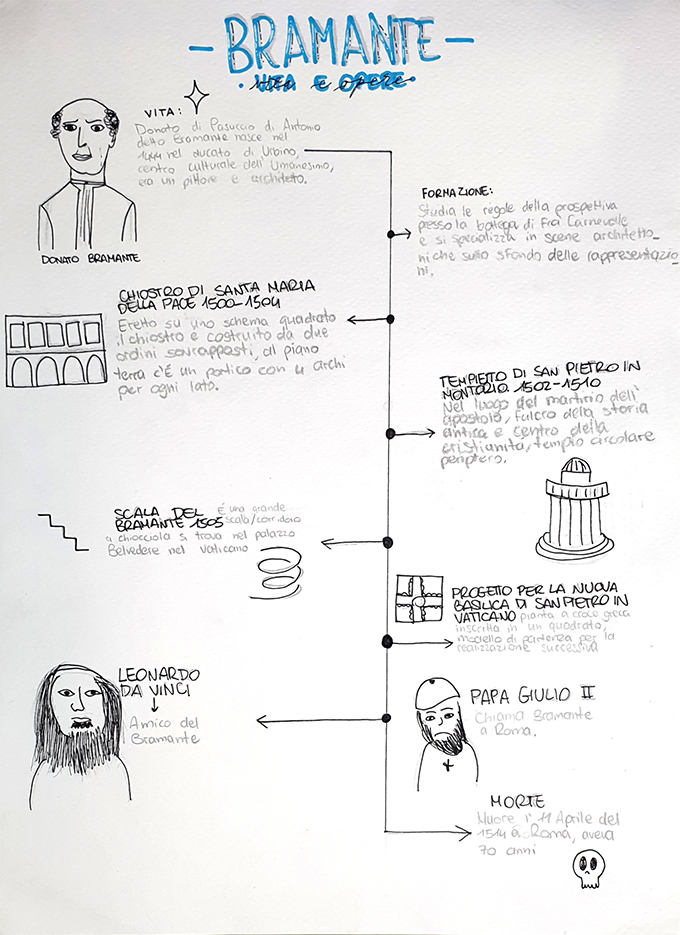 - BRAMANTE -
• vita e opere •
VITA:
Donato di Pasuccio di Antonio
detto Bramante nasce nel
1444 nel ducato di Urbino,
centro culturale dell'Umanesimo,
era un pittore e architetto.
DONATO BRAMANTE
FORMAZIONE:
Studia le regole della prospettiva
presso la bottega di Fra Carnevalle
e si specializza in scene architetto_
niche sullo sfondo delle rappresentazio
ni.
CHIOSTRO DI SANTA MARIA
DELLA PACE 1500-1504
Eretto su uno schema quadrato
il chiostro e costruito da due
ordini sovrapposti, al piano
terra c'è un portico con 4 archi
per ogni lato.
TEMPIETTO DI SAN PIETRO IN
MONTORIO 1502-1510
Nel luogo del martirio dell'
apostolo, fulcro della storia
antica e centro della
cristianità, tempio circolare
periptero.
SCALA DEL
BRAMANTE 1505
É una grande
scala/corridoio
a chiocciola si trova nel palazzo
Belvedere nel Vaticano
PROGETTO PER LA NUOVA
BASILICA DI SAN PIETRO IN
VATICANO pianta a croce greca
inscritta in un quadrato,
modello di partenza per la
realizzazione successiva
LEONARDO
DA VINCI
Amico del
Bramante
PAPA GIULIO II
Chiama Bramante
a Roma.
MORTE
Muore l'11 Aprile del
1514 a Roma, aveva
70 anni